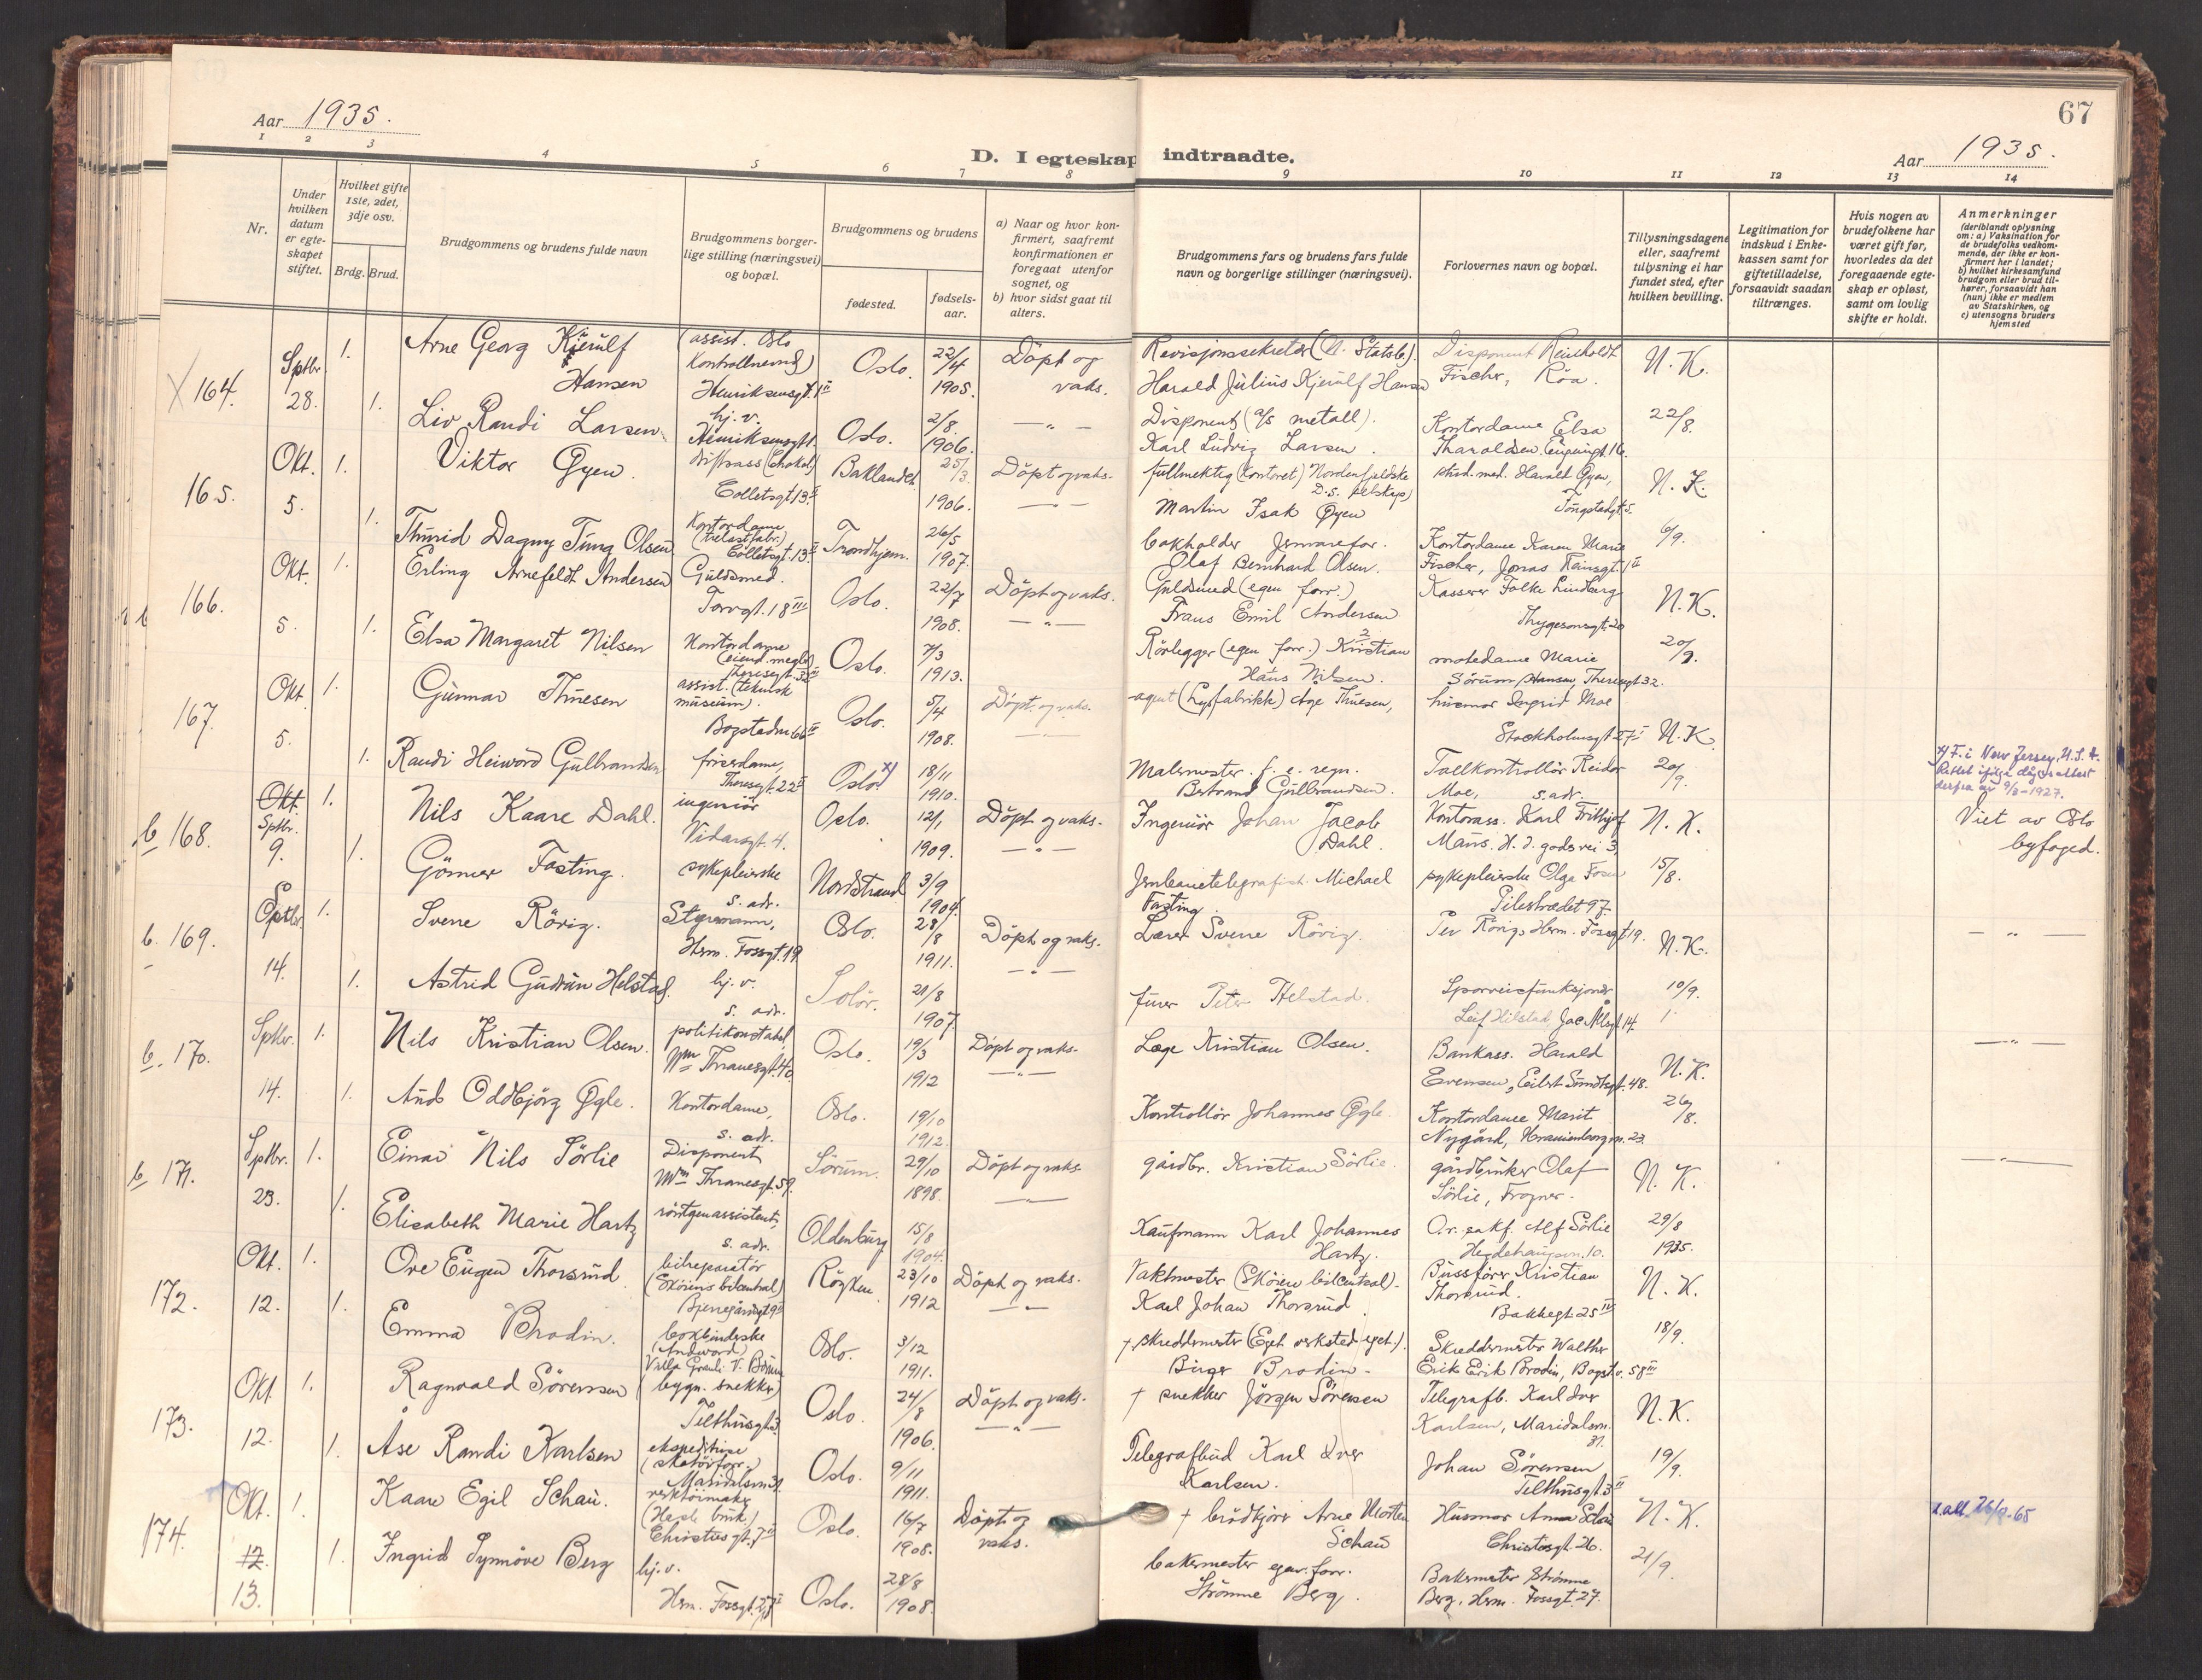 67
Aar 1935.
D. I egteskap indtraadte.
Aar 1935.
1 2 3 4 5 6 7 8 9 10 11 12 13 14
Nr.
Under hvilken datum er egteskapet stiftet.
Hvilket gifte 1ste, 2det, 3dje osv.
Brdg. Brud.
Brudgommens og brudens fulde navn
Brudgommens borgerlige stilling (næringsvei) og bopæl.
Brudgommens og brudens
fødested.
fødselsaar.
a) Naar og hvor konfirmert, saafremt konfirmationen er foregaat utenfor sognet, og
b) hvor sidst gaat til alters.
Brudgommens fars og brudens fars fulde navn og borgerlige stillinger (næringsvei).
Forlovernes navn og bopæl.
Tillysningsdagene eller, saafremt tillysning ei har fundet sted, efter hvilken bevilling.
Legitimation for indskud i Enkekassen samt for giftetilladelse, forsaavidt saadan tiltrænges.
Hvis nogen av brudefolkene har været gift før, hvorledes da det foregaaende egteskap er opløst, samt om lovlig skifte er holdt.
Anmerkninger
(deriblandt oplysning om: a) Vaksination for de brudefolks vedkommende, der ikke er konfirmert her i landet;
b) hvilket kirkesamfund brudgom eller brud tilhører, forsaavidt han (hun) ikke er medlem av Statskirken, og
c) utensogns bruders hjemsted
164. Sptbr. 28. 1. Arne Georg Kjerulf Hansen assist. Oslo Kontrollnevnd) Henriksensgt. 1 II Oslo. 22/4 1905. Döpt og vaks. Revisjonssekretær (N. Statsb.). Harald Julius Kjerulf Hansen Disponent Reinholdt Fischer, Röa. N. K.
1. Liv Randi Larsen hj. v. Henriksensgt 1. Oslo. 2/8. 1906. — " — Disponent (A/S metall). Karl Ludvig Larsen. Kontordame Elsa Tharaldsen 16. 22/8.
165. Okt. 5. 1. Viktor Øyen. (Chokol.) Colletsgt 13. II Baklandet 25/3. 1906. Döpt og vaks. fullmektig (Kontoret) Nordenfjeldske D.S. selskap) Martin Isak Øyen stud. med. Harald Øyen, 5. N. K.
1. Thurid Dagny Tung Olsen Kontordame Colletsgt. 13. II Trondhjem. 26/5 1907. — " — bokholder Olaf Bernhard Olsen. Kontordame Karen Marie Fischer, Jonas Reinsgt. 1 II 6/9.
166. Okt. 5. 1. Erling Arnefeldt Andersen Guldsmed. Torvgt. 18 III Oslo. 22/7 1908. Döpt og vaks. Guldsmed (egen forr.) Frans Emil Andersen Kasserer Folke Lindberg Thygesonsgt. 20 N. K.
1. Elsa Margaret Nilsen Kontordame Theresegt. 32 II Oslo. 7/3 1913. — " — Rörlegger (egen forr.) Kristian Hans Nilsen. motedame Marie Sörum Hansen, Theresegt 32. 20/9.
167. Okt. 5. 1. Gunnar Thuesen assist. (teknisk museum). Bogstadvn 66 II Oslo. 5/4 1908. Döpt og vaks. agent (Lysfabrikk) Aage Thuesen, husmor Ingrid Moe Stockholmsgt 27 I N. K.
1. Randi Heiword Gulbrandsen friserdame, Theresegt. 22 II Oslo x) 18/11 1910. Malermester f. e. regn. Bertrand Gulbrandsen. Tollkontrollör Reidar Moe, s. adr. 20/9. x) F. i New Jersey, U.S.A. Rettet ifölge dåpsattest derfra av 9/8-1927.
b 168. Okt. Sptbr. 9. 1. Nils Kaare Dahl. ingeniör Vidarsgt. 4. Oslo. 12/1 1909. Döpt og vaks. Ingeniör Johan Jacob Dahl. Kontorass. Karl Frithjof N. K. Viet av Oslo byfoged.
1. Fasting. sykepleierske s. adr. Nordstrand 3/9 1904. — " — Jernbanetelegrafist Michael Fasting. sykepleierske Olga Pilestrædet 97. 15/8.
b. 169. Sptbr. 14. 1. Sverre Rövig. Styrmann, Herm. Fossgt. 19. Oslo. 28/8 1911. Döpt og vaks. Lærer Sverre Rövig. Per Rövig, Herm. Fossgt 19. N. K. — " —
1. Astrid Gudrun Helstad. hj. v. s. adr. Solör. 21/8 1907. — " — Peter Helstad. Sporveisfunksjonær Leif Helstad, Jac. Aalsgt. 14. 10/9.
b. 170. Sptbr. 14. 1. Nils Kristian Olsen. politikonstabel, Wm Thranesgt. 40. Oslo. 19/3 1912 Döpt og vaks. Læge Kristian Olsen. Bankass. Harald Evensen, Eilert Sundtsgt. 48. N. K. — " —
1. Aud Oddbjörg Øgle. Kontordame, s. adr. Oslo. 19/10 1912. — " — Kontrollör Johannes Øgle. Kontordame Marit Nygård, Uranienborgvn. 23. 26/8.
b 171. Sptbr. 23. 1. Einar Nils Sörlie Disponent Wm Thranesgt. 59. Sörum. 29/10 1898. Döpt og vaks. gårdbr. Kristian Sörlie. gårdbruker Olaf Sörlie, Frogner. N. K. — " —
1. Elisabeth Marie Hartz röntgenassistent, s. adr. Oldenburg 15/8 1904. Kaufmann Karl Johannes Hartz. O.r. sakf. Alf Sörlie Hegdehaugsvn. 10. 29/8 1935.
172. Okt. 12. 1. Ove Eugen Thorsrud bilreparatör (Sköiens bilcentral) Röyken. 23/10 1912 Döpt og vaks. Vaktmester (Sköien bilcentral). Karl Johan Thorsrud Bussförer Kristian Thorsrud. Bakkegt. 25 IV N. K.
1. Emma Brodin. bokbinderske (Andvord) Oslo. 3/12 1911. + skreddermester (Eget verksted eget.). Birger Brodin. Skreddermester Walther Erik Erik Brodin, Bogst.v. 58 III 18/9.
173. Okt. 12. 1. Ragnvald Sörensen (bygn. snekker) Telthusgt 3. Oslo. 24/8 1906. Döpt og vaks. + snekker Jörgen Sörensen Telegrafb. Karl Iver Karlsen, Maridalsvn. 31. N. K.
1. Åse Randi Karlsen ekspeditrise (skotöiforr.) Maridalsvn 31. Oslo. 9/11 1911. — " — Telegrafbud Karl Iver Karlsen. Johan Sörensen Telthusgt 3 II 19/9.
174. Okt. 12. 13. 1. Kaare Egil Schau. verktöimaker Christiesgt. 7 II Oslo. 16/7 1908. Döpt og vaks. + brödkjörer Arne Morten Schau Husmor Anna Schau Christiesgt. 26. N. K.
1. Ingrid Synnöve Berg hj. v. Herm. Fossgt. 27 II Oslo. 28/8 1908. bakermester egen forr. Strömme Berg. Bakermester Strömme Berg, Herm. Fossgt. 27. 21/9.